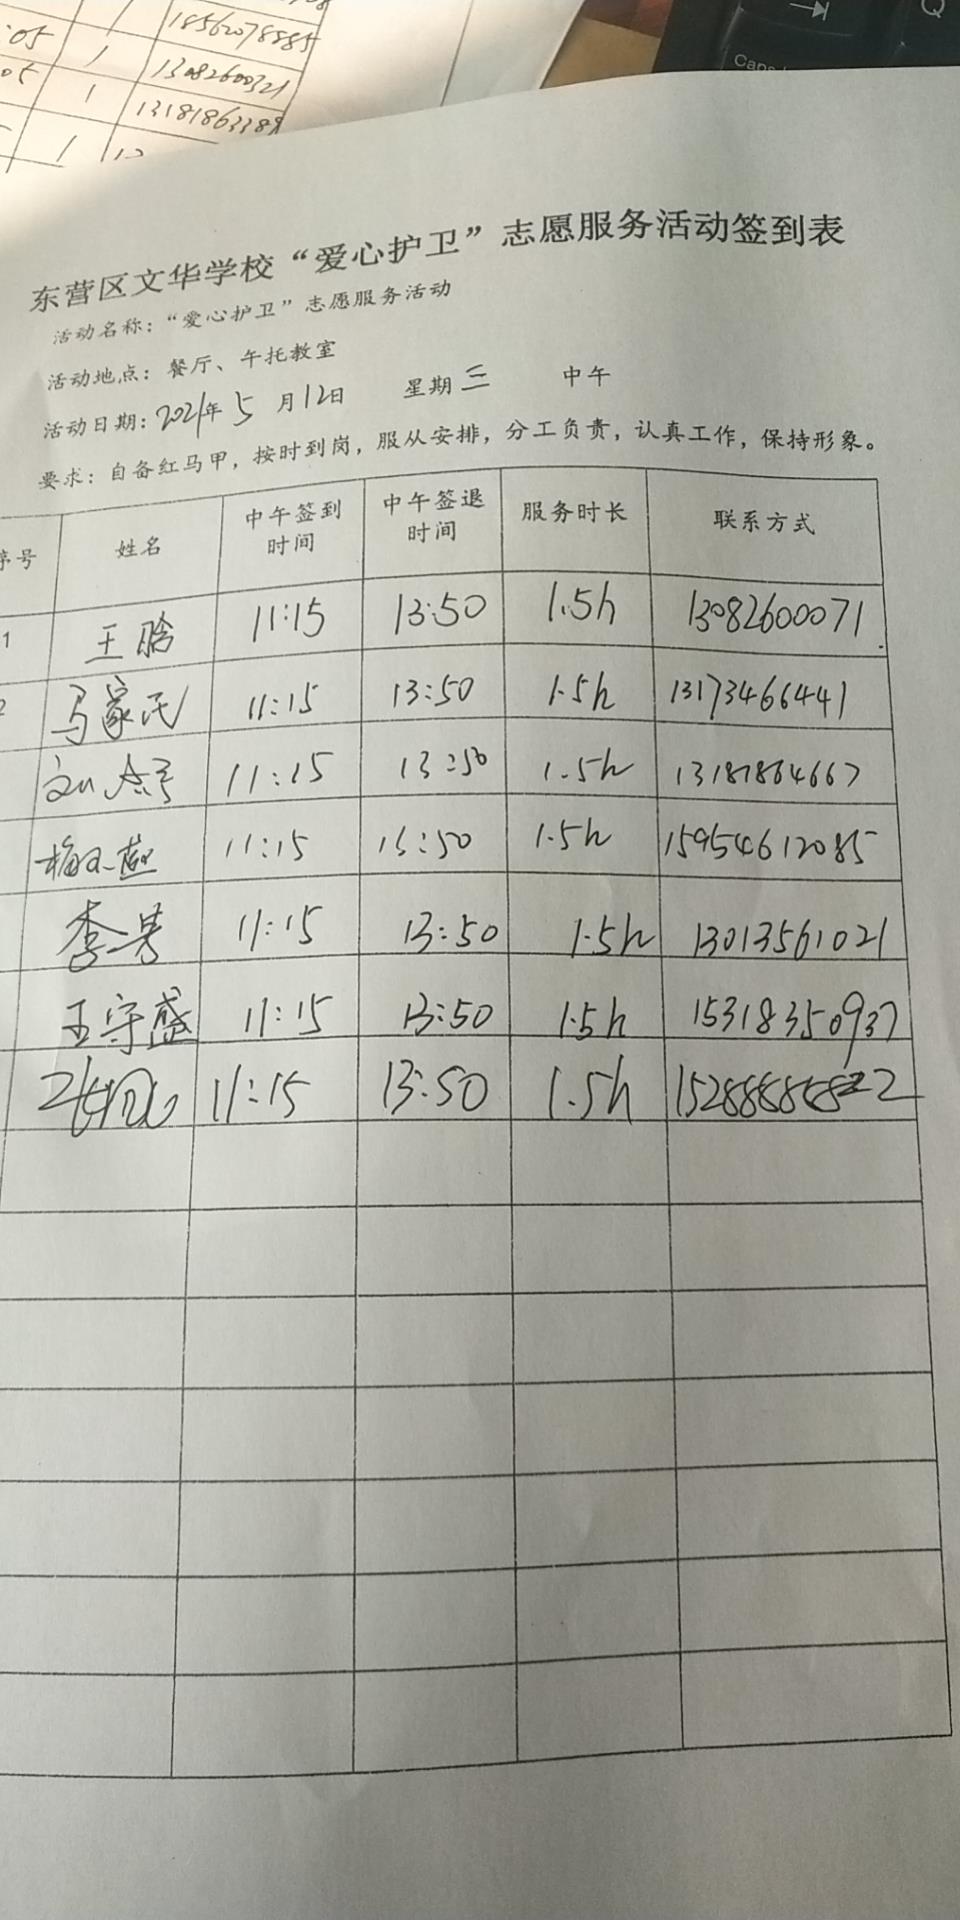 :05 1 18562078885
05 1 13082600321
1 13181863389
1
Caps
Q
东营区文华学校“爱心护卫”志愿服务活动签到表
活动名称：“爱心护卫”志愿服务活动
活动地点：餐厅、午托教室
活动日期：2021年 5 月12日 星期三 中午
要求：自备红马甲，按时到岗，服从安排，分工负责，认真工作，保持形象。
序号 姓名 中午签到时间 中午签退时间 服务时长 联系方式
1 王晗 11:15 13:50 1.5h 13082600071
2 马家民 11:15 13:50 1.5h 13173466441
11:15 13:50 1.5h 13181864667
11:15 13:50 1.5h 15954612085
李芳 11:15 13:50 1.5h 13013561021
王守盛 11:15 13:50 1.5h 15318350937
11:15 13:50 1.5h